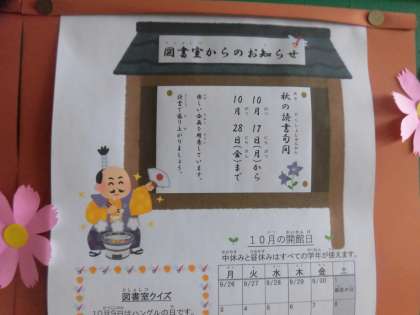 図書室からのお知らせ
秋の読書旬間
10月17日(月)から
10月28日(金)まで
楽しい企画を用意しています。
読書で盛り上がりましょう。
10月の開館日
中休みと昼休みはすべての学年が使えます。
月 火 水 木 金 土
9/26 9/27 9/28 9/29 9/30
図書室クイズ
10月9日はハングルの日です。